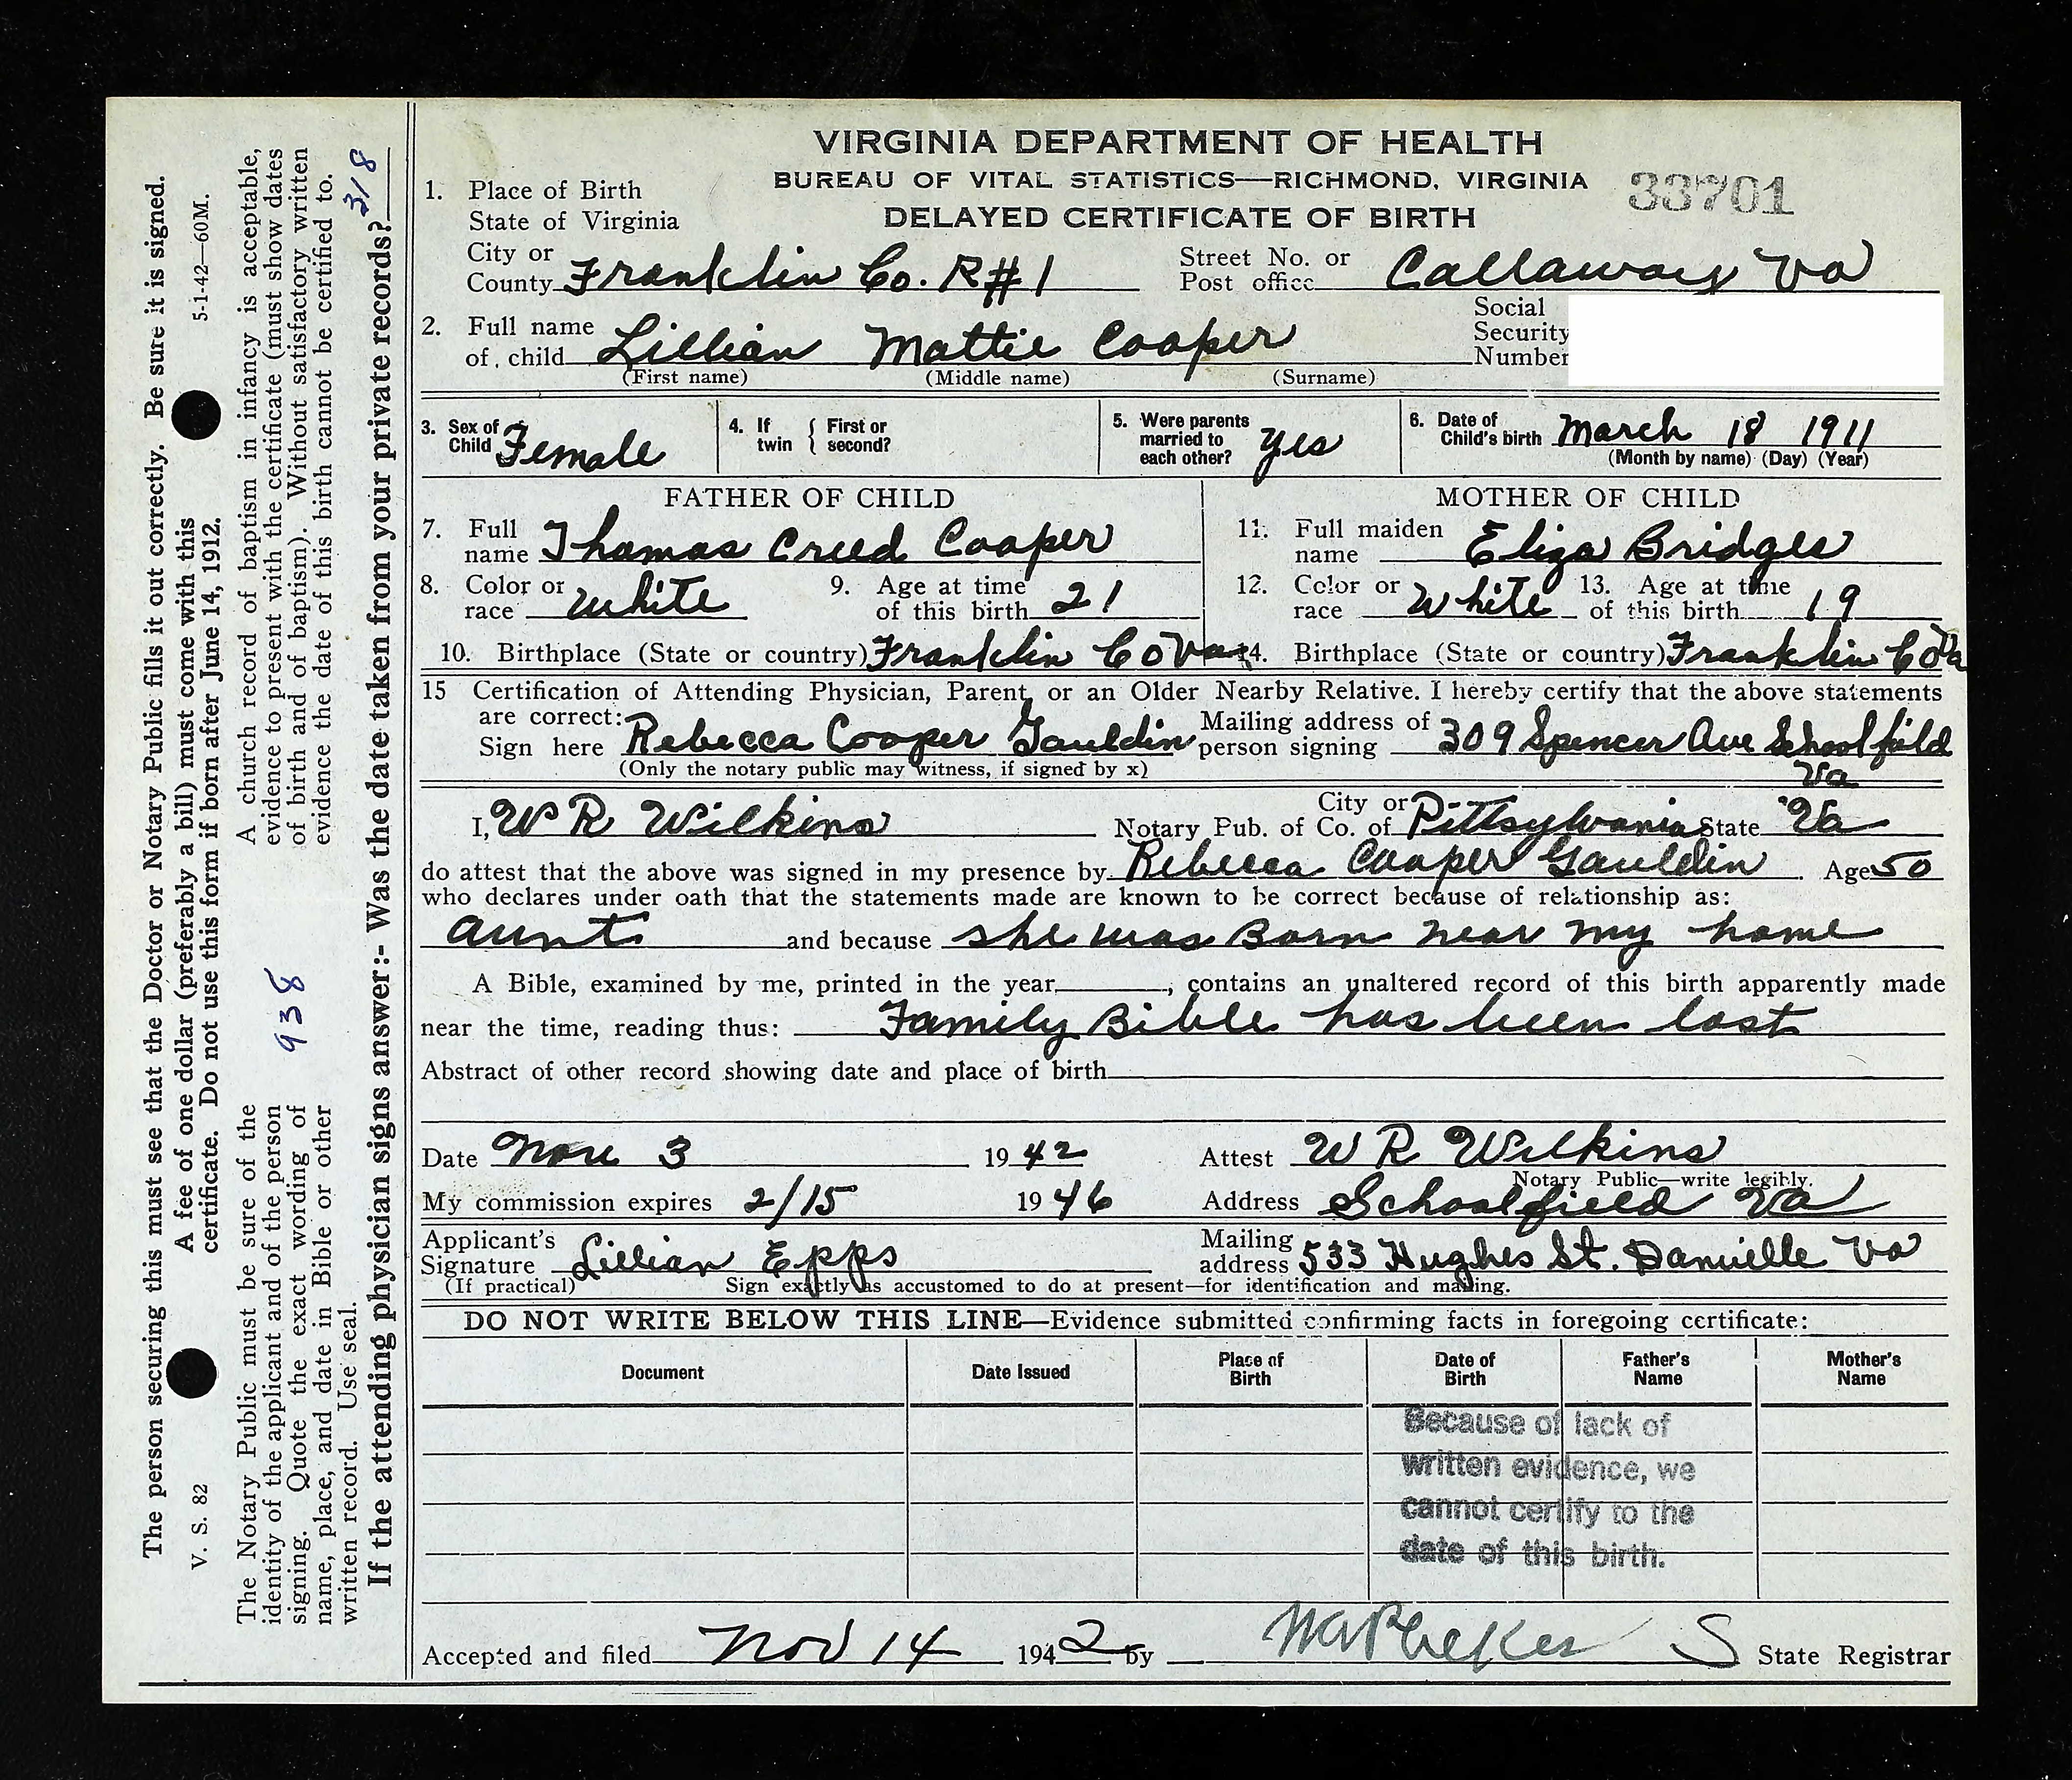 VIRGINIA DEPARTMENT OF HEALTH
BUREAU OF VITAL STATISTICS—RICHMOND, VIRGINIA
33701
DELAYED CERTIFICATE OF BIRTH
1. Place of Birth
State of Virginia
City or County Franklin Co. R#1 Street No. or Post office Callaway Va
2. Full name of child Lillian Mattie Cooper Social Security Number
(First name) (Middle name) (Surname)
3. Sex of Child Female 4. If twin { First or second? 5. Were parents married to each other? yes 6. Date of Child's birth March 18 1911
(Month by name) (Day) (Year)
FATHER OF CHILD MOTHER OF CHILD
7. Full name Thomas Creed Cooper 11. Full maiden name Eliza Bridges
8. Color or race White 9. Age at time of this birth 21 12. Color or race White 13. Age at time of this birth 19
10. Birthplace (State or country) Franklin Co Va 14. Birthplace (State or country) Franklin Co Va
15 Certification of Attending Physician, Parent, or an Older Nearby Relative. I hereby certify that the above statements
are correct:
Sign here Rebecca Cooper Gauldin Mailing address of person signing 309 Spencer Ave Schoolfield Va
(Only the notary public may witness, if signed by x)
I, W R Wilkins Notary Pub. of City or Co. of Pittsylvania State Va
do attest that the above was signed in my presence by Rebecca Cooper Gauldin. Age 50
who declares under oath that the statements made are known to be correct because of relationship as:
aunt and because she was Born near my home
A Bible, examined by me, printed in the year , contains an unaltered record of this birth apparently made
near the time, reading thus: Family Bible has been lost
Abstract of other record showing date and place of birth
Date Nov 3 1942 Attest W R Wilkins
Notary Public—write legibly.
My commission expires 2/15 1946 Address Schoolfield Va
Applicant's Signature Lillian Epps Mailing address 533 Hughes St. Danville Va
(If practical) Sign exactly as accustomed to do at present—for identification and mailing.
DO NOT WRITE BELOW THIS LINE—Evidence submitted confirming facts in foregoing certificate:
Document Date Issued Place of Birth Date of Birth Father's Name Mother's Name
Because of lack of
written evidence, we
cannot certify to the
date of this birth.
Accepted and filed Nov 14 1942 by State Registrar
The person securing this must see that the Doctor or Notary Public fills it out correctly. Be sure it is signed.
V. S. 82 A fee of one dollar (preferably a bill) must come with this 5-1-42—60M.
certificate. Do not use this form if born after June 14, 1912.
The Notary Public must be sure of the
identity of the applicant and of the person
signing. Quote the exact wording of
name, place, and date in Bible or other
written record. Use seal.
938
A church record of baptism in infancy is acceptable,
evidence to present with the certificate (must show dates
of birth and of baptism). Without satisfactory written
evidence the date of this birth cannot be certified to.
If the attending physician signs answer:- Was the date taken from your private records? 318